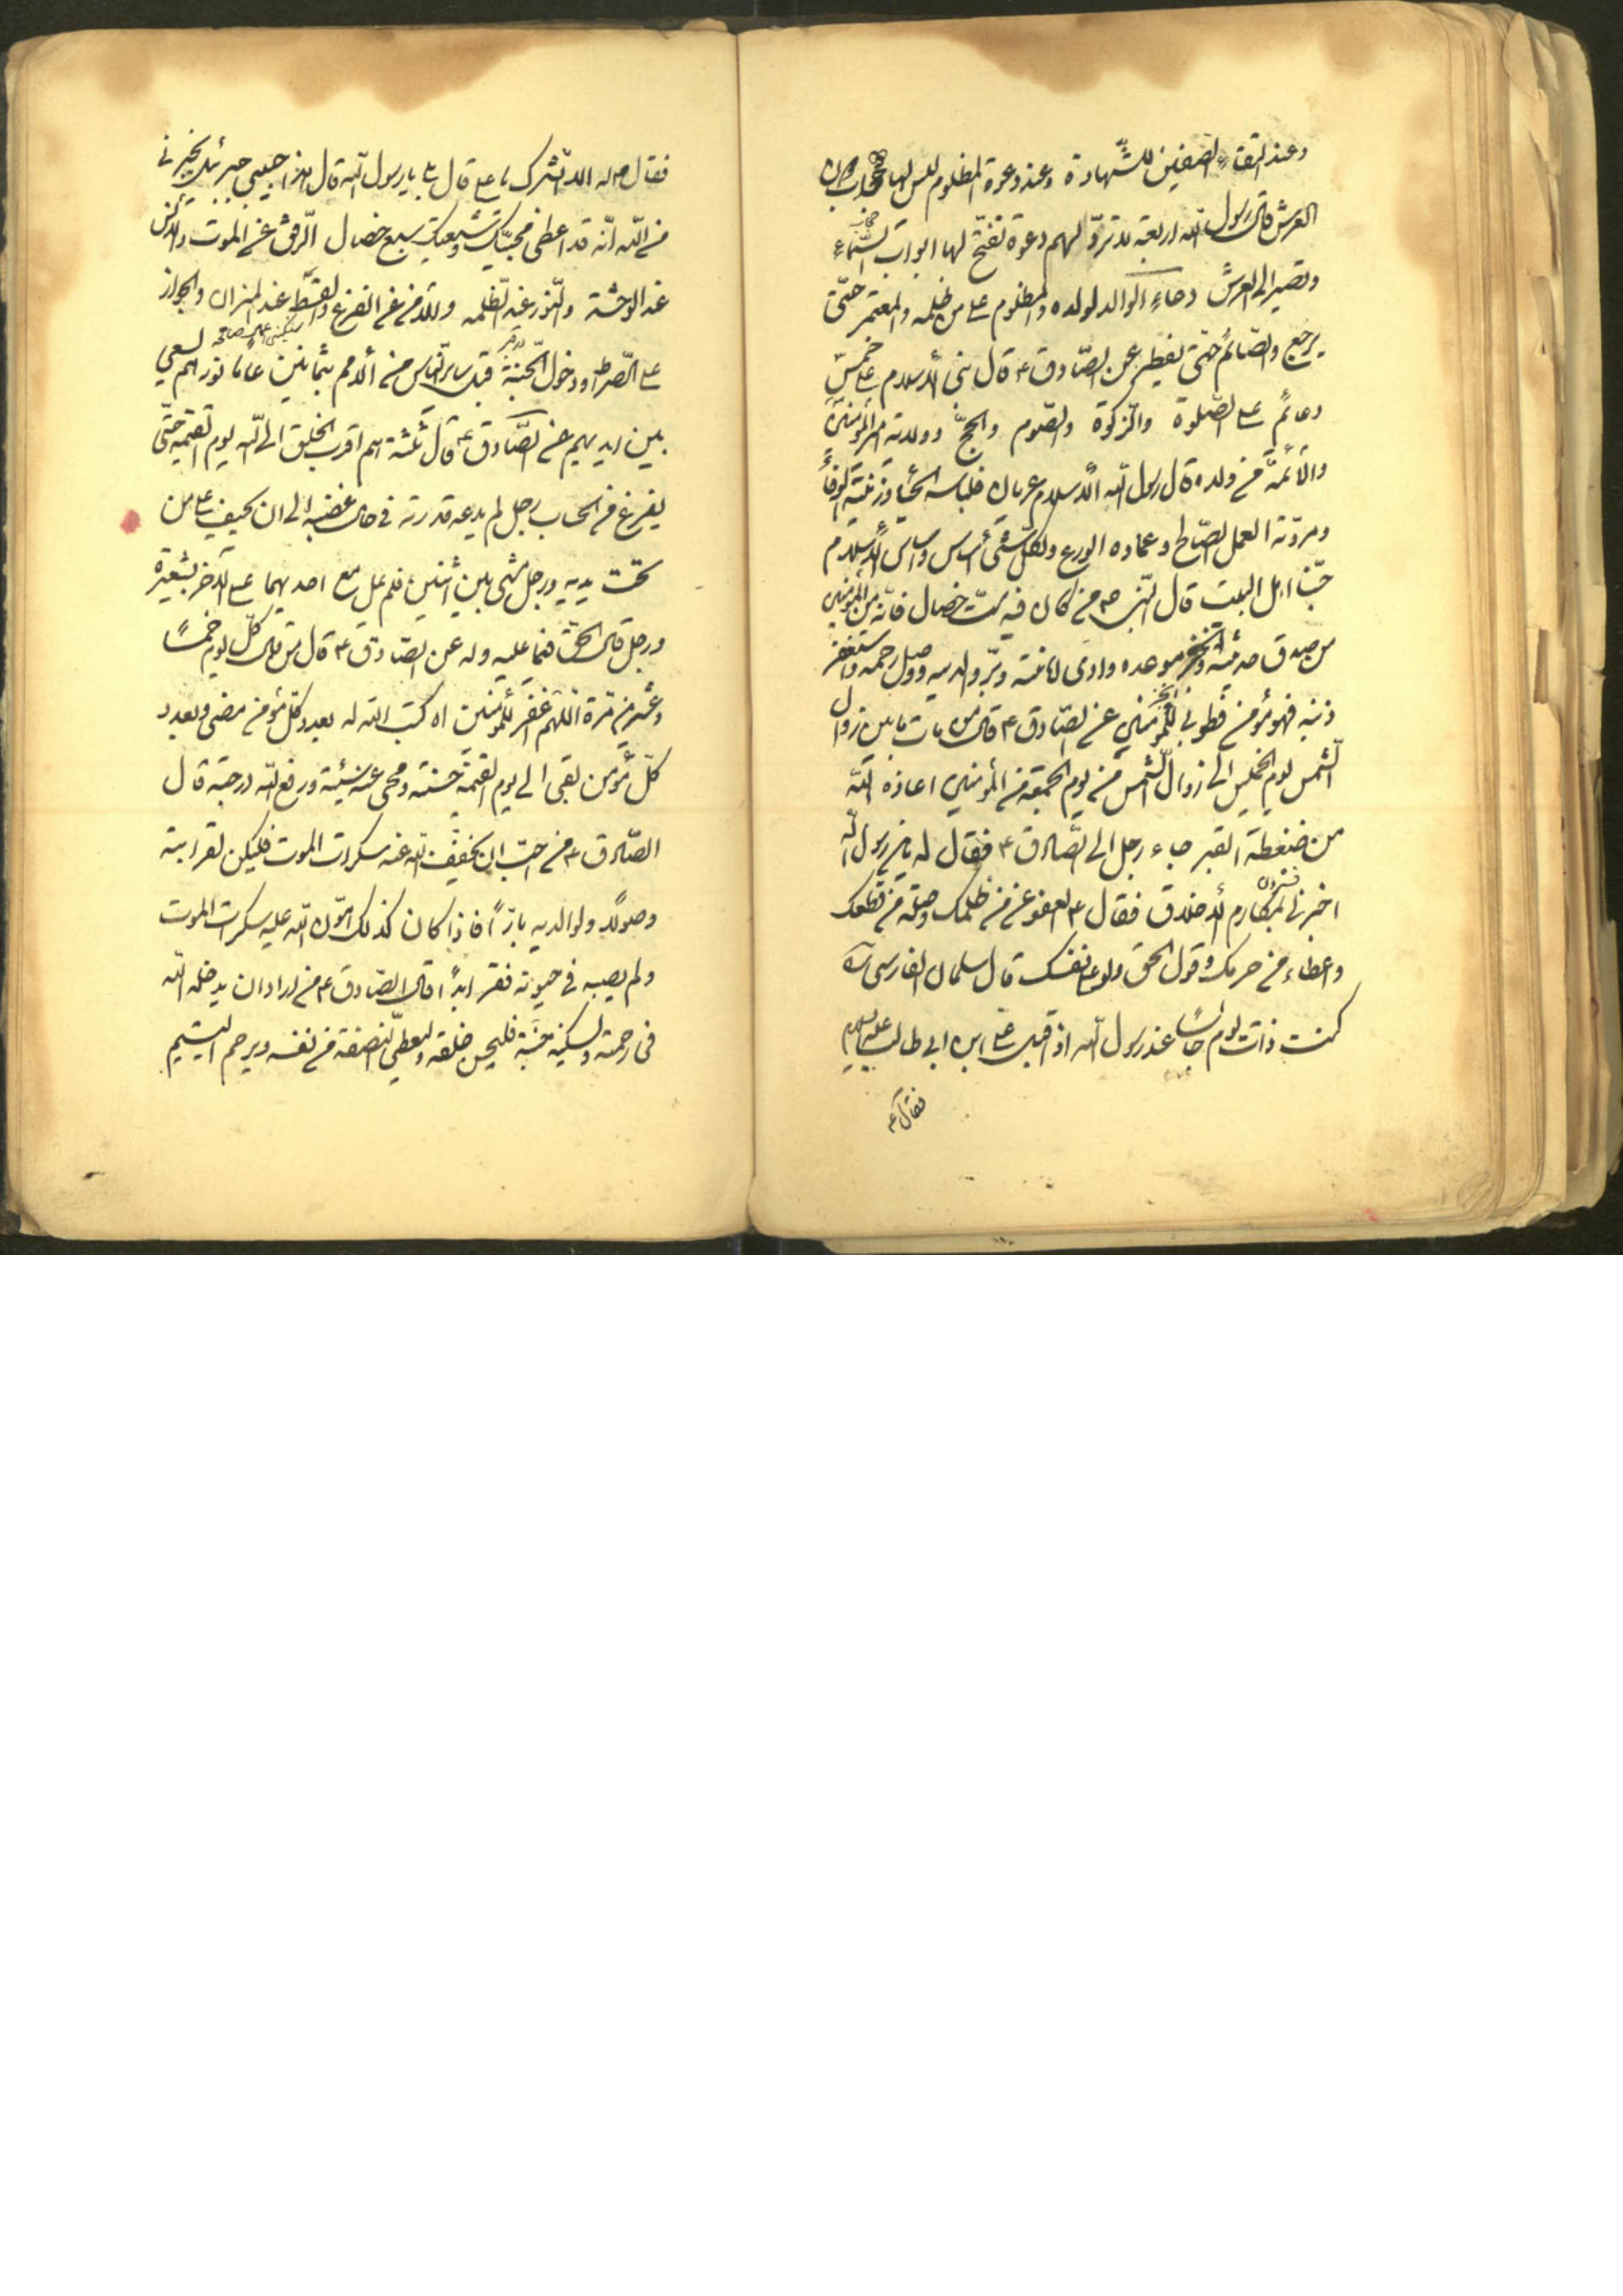 وعند التقاء الصفين للشّهادة وعند دعوة المظلوم ليس لها حجاب دون
العرش قال رسول الله اربعة لا تردّ لهم دعوة تفتح لها ابواب السّماء
وتصير الى العرش دعاء الوالد لولده والمظلوم على من ظلمه والمعتمر حتّى
يرجع والصّائم حتّى يفطر عن الصّادق ع قال بنى الاسلام على خمس
دعائم على الصّلوة والزكوة والصّوم والحجّ وولاية امير المؤمنين
والائمّة من ولده قال رسول الله الاسلام عريان فلباسه الحياء وزينته الوفاء
ومروّته العمل الصّالح وعماده الورع ولكلّ شىء اساس واساس الاسلام
حبّنا اهل البيت قال النّبى ص من كان فيه ستّ خصال فانّه من المؤمنين
من صدق حديثه وانجز موعده وادى امانته وبرّ والديه ووصل رحمه واستغفر
ذنبه فهو مؤمن فطوبى للمؤمنين عن الصّادق ع قال من مات ما بين زوال
الشّمس يوم الخميس الى زوال الشّمس من يوم الجمعة من المؤمنين اعاذه الله
من ضغطة القبر جاء رجل الى الصّادق ع فقال له يا بن رسول الله
اخبرنى بمكارم الاخلاق فقال ع العفو عمّن ظلمك وصلة من قطعك
واعطاء من حرمك وقول الحق ولو على نفسك قال سلمان الفارسى
كنت ذات يوم جالسًا عند رسول الله اذ اقبل على ابن ابى طالب عليه السلام
فقال ع
فقال ص له الا ابشّرك يا على قال بلى يا رسول الله قال هذا حبيبى جبرئيل يخبرنى
من الله انّه قد اعطى محبّيك وشيعتك سبع خصال الرّفق عند الموت والانس
عند الوحشة والنّور عند الظّلمة والامن عند الفزع والقسط عند الميزان والجواز
على الصّراط ودخول الجنّة قبل سائر النّاس من الامم بثمانين عاما نورهم يسعى
بين ايديهم عن الصّادق ع قال ثلثة هم اقرب الخلق الى الله يوم القيمة حتّى
يفرغ من الحساب رجل لم يدعه قدرته فى حال غضبه الى ان يحيف على من
تحت يديه ورجل مشى بين اثنين فلم يمل مع احديهما على الاخر بشعيرة
ورجل قال الحقّ فيما عليه وله عن الصّادق ع قال من قال كلّ يوم خمسًا
وعشرين مرّة اللّهم اغفر للمؤمنين اه كتب الله له بعدد كلّ مؤمن مضى وبعدد
كلّ مؤمن بقى الى يوم القيمة حسنة ومحى عنه سيّئة ورفع الله درجته قال
الصّادق ع من احبّ ان يخفّف الله عنه سكرات الموت فليكن لقرابته
وصولًا ولوالديه بارًّا فاذا كان كذلك هوّن الله عليه سكرات الموت
ولم يصبه فى حيوته فقر ابدًا قال الصّادق ع من اراد ان يدخله الله
فى رحمته ويسكنه جنّته فليحسن خلقه وليعطى النصفة من نفسه وليرحم اليتيم